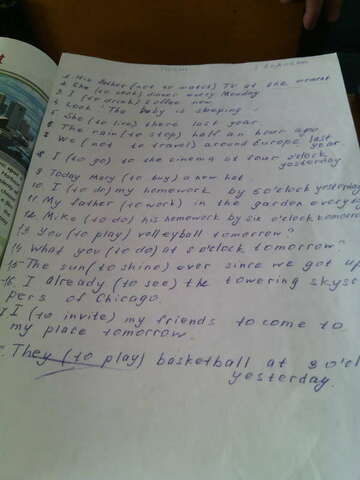 1. His father (not to watch) TV at the moment
2. She (to cook) dinner every Monday
3. I (to drink) coffee now
4. Look! The baby is sleeping
5. She (to live) there last year.
6. The rain (to stop) half an hour ago
7. We (not to travel) around Europe last year.
8. I (to go) to the cinema at four o'clock yesterday
9. Today Mary (to buy) a new hat.
10. I (to do) my homework by 5 o'clock yesterday
11. My father (to work) in the garden every
12. Mike (to do) his homework by six o'clock tomorrow
13. You (to play) volleyball tomorrow?
14. What you (to do) at 5 o'clock tomorrow?
15. The sun (to shine) ever since we got up
16. I already (to see) the towering skysc
pers of Chicago.
I (to invite) my friends to come to
my place tomorrow.
They (to play) basketball at 3 o'cl
yesterday.